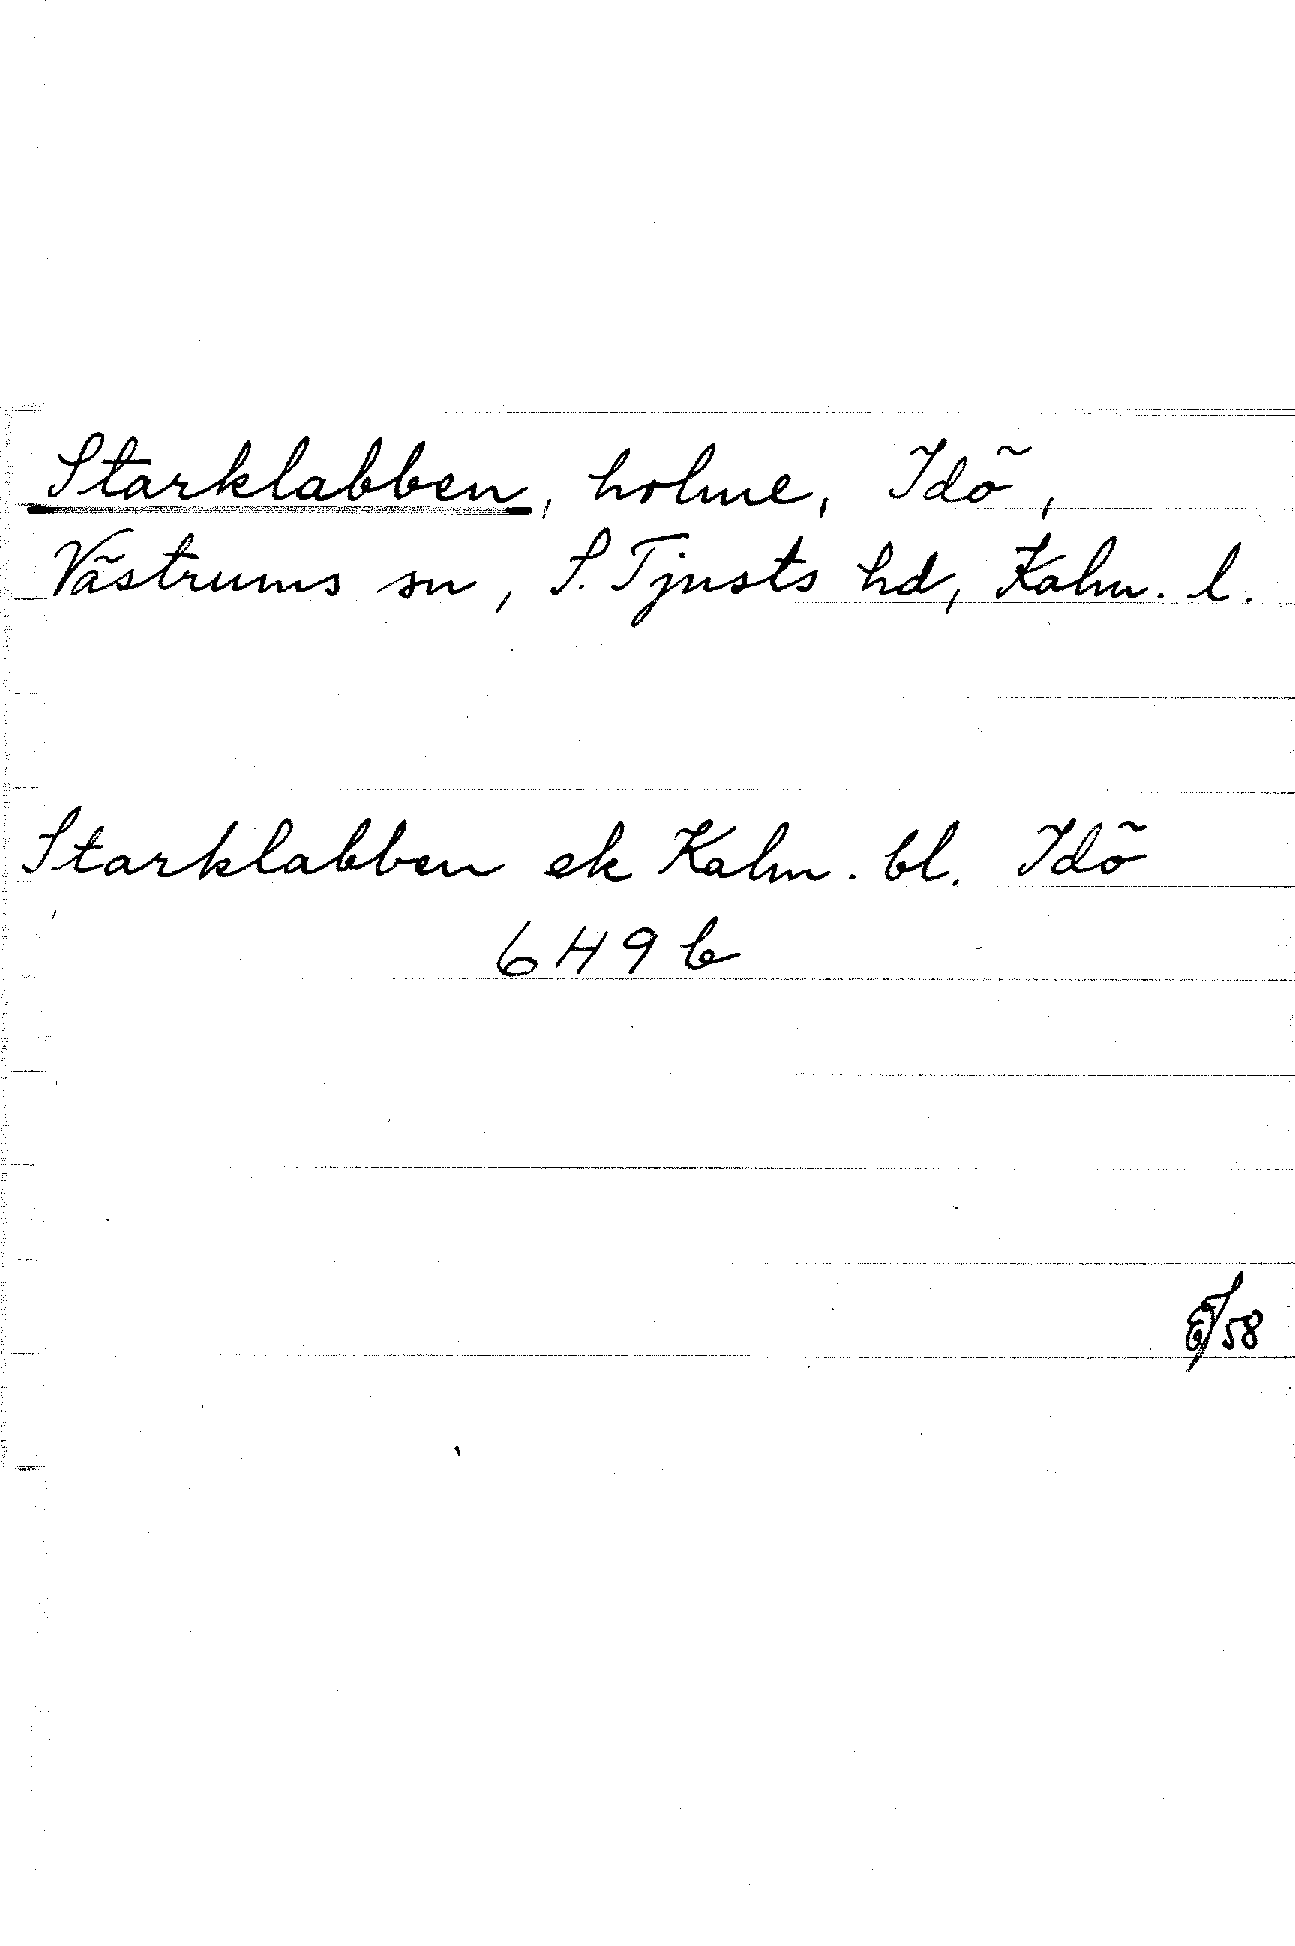 Starklabben, holme, Idö,
Västrums sn, S. Tjusts hd, Kalm. l.
Starklabben ek Kalm. bl. Idö
6H9b
58